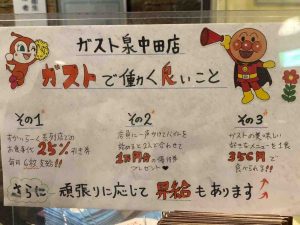 ガスト泉中田店
ガストで働く良いこと
その1
すかいらーく系列店での
お食事代25%割引券
毎月6枚支給!!
その2
店長に一声かけてバイトを
始めると2人で合わせて
1万円分の優待券
プレゼント♥
その3
ガストの美味しい
好きなメニューを1食
356円で
食べられる!!
さらに 頑張りに応じて 昇給もあります